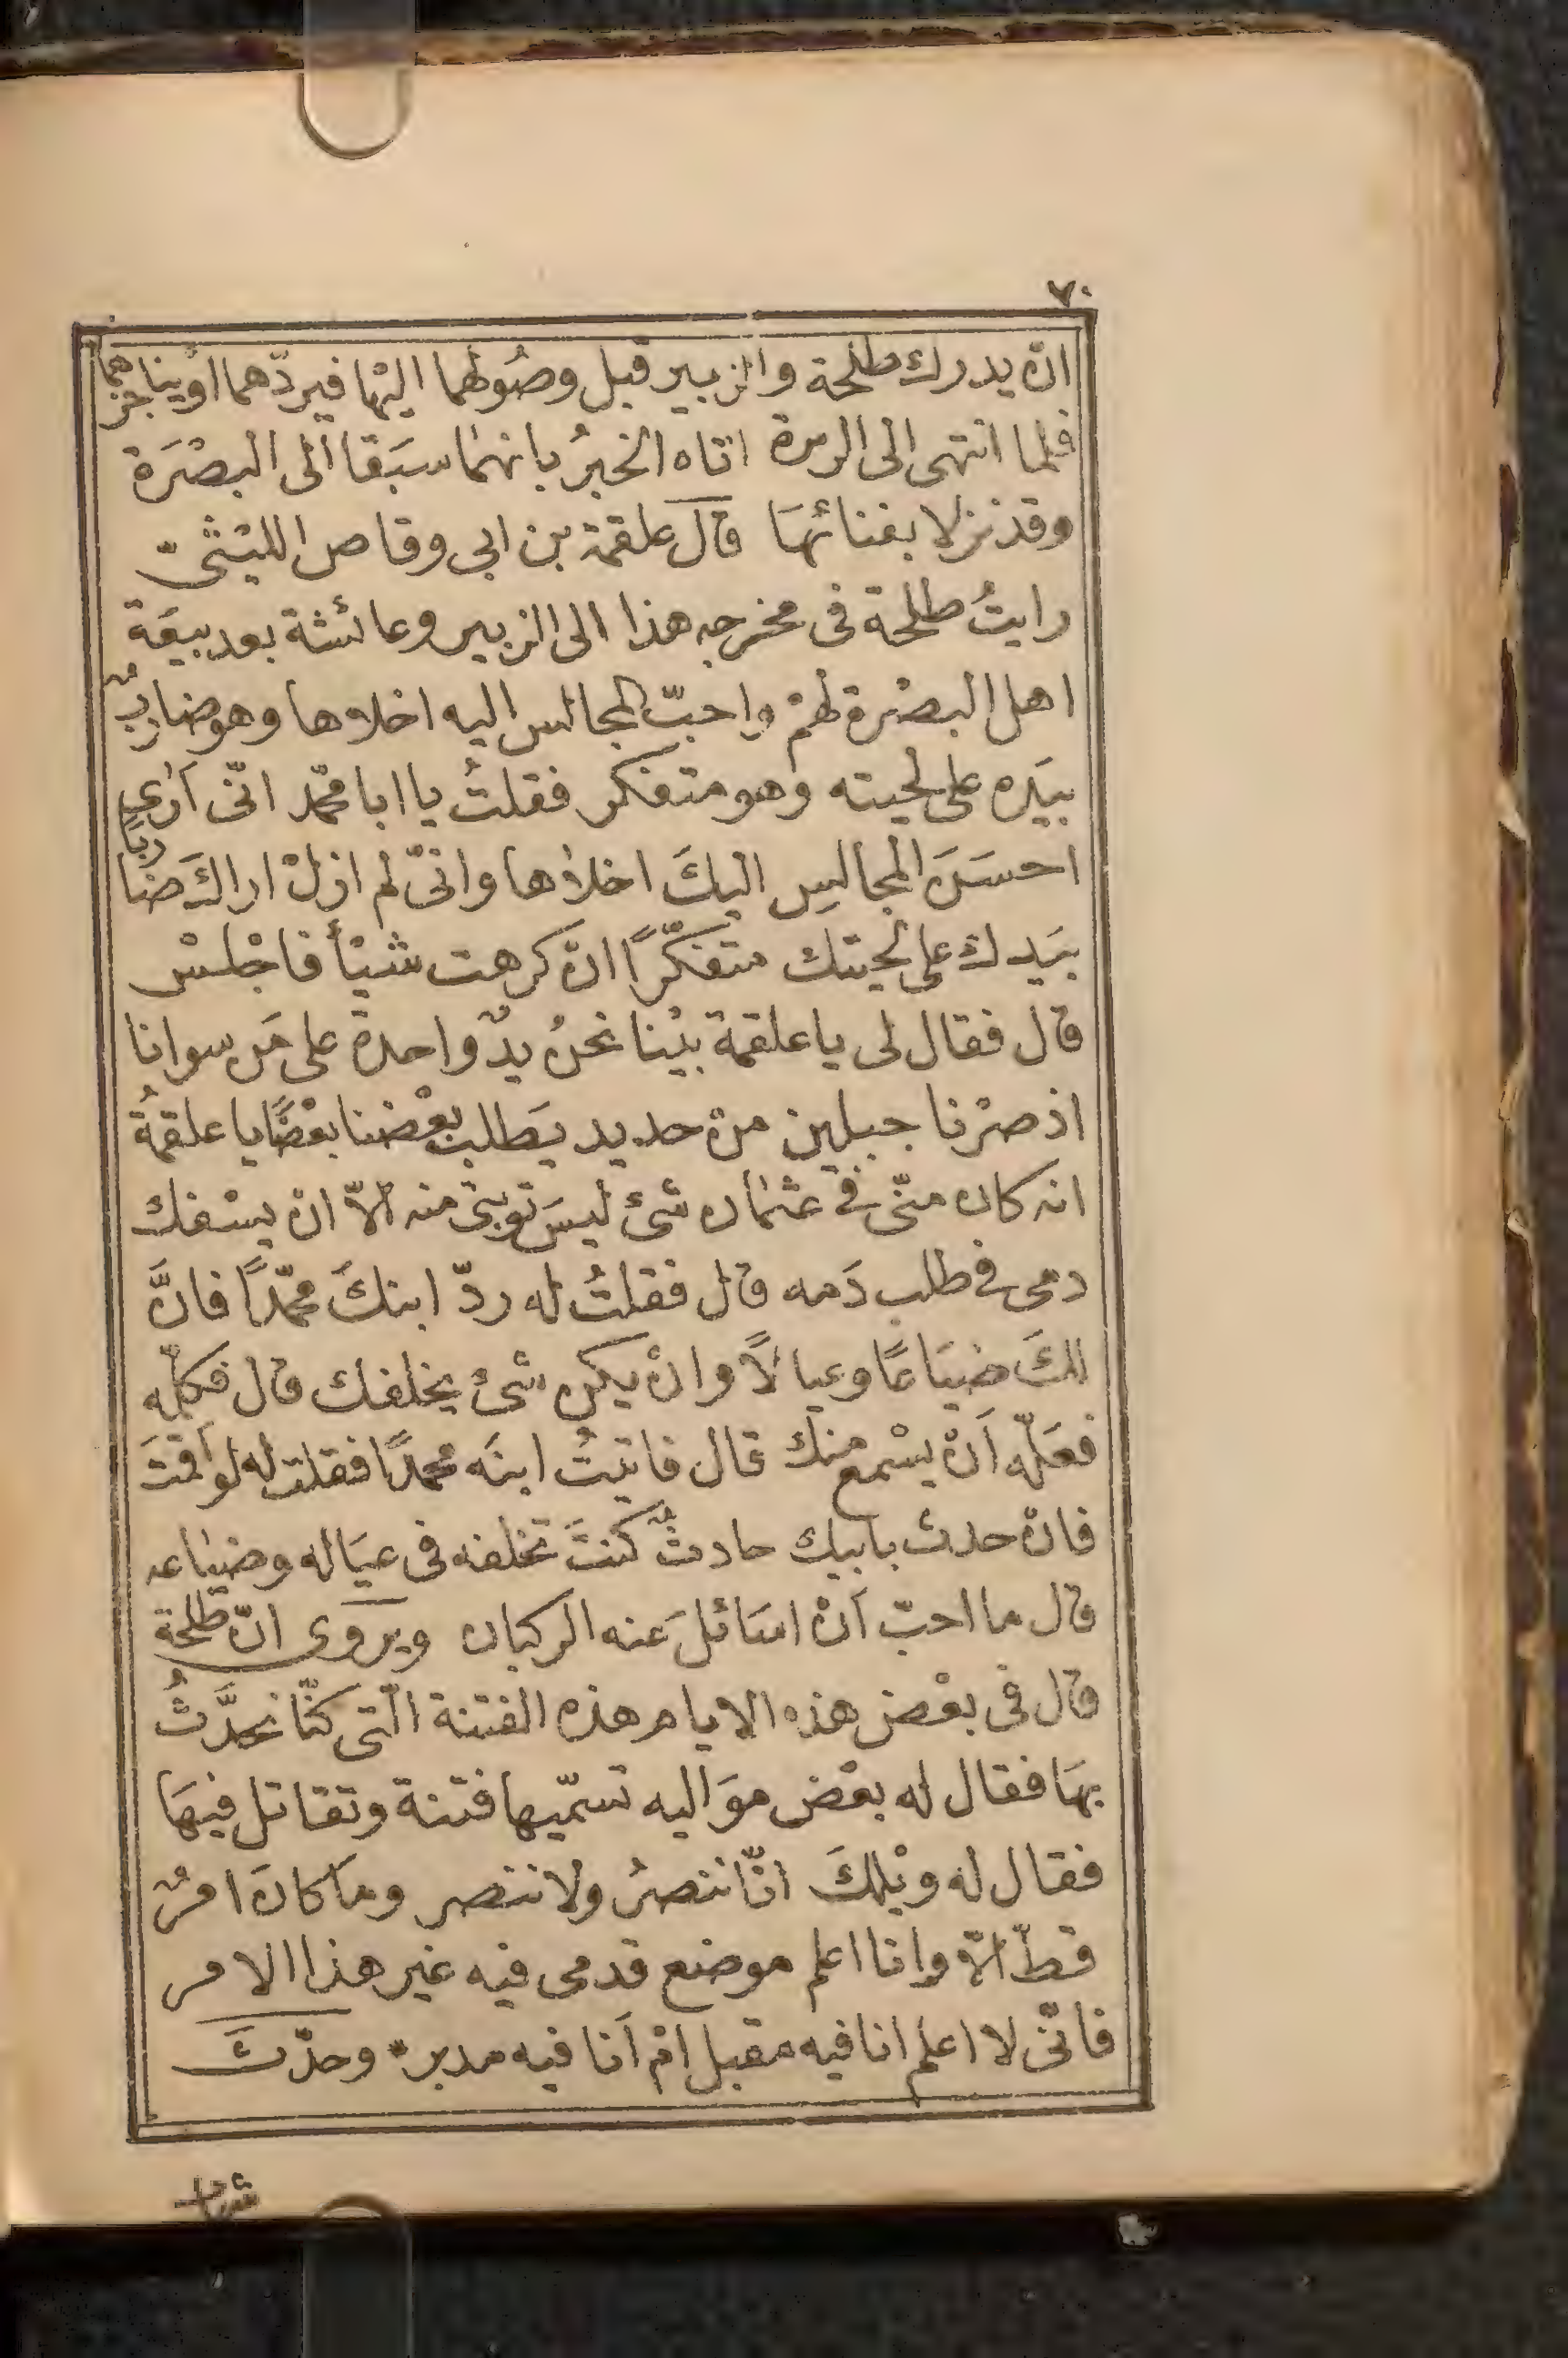 ٧٠
ان يدرك طلحة والزبير قبل وصُولهما اليها فيردّهما اويناجزهما
فلما انتهى الى الربذة اتاه الخبرُ بانهما سبَقا الى البصْرَة
وقد نزلا بفنائهَا قال علقمة بن ابى وقاص الليثىّ
رايتُ طلحة فى مخرجه هذا الى الزبير وعائشة بعد بيعَة
اهل البصْرة لهمْ واحبّ المجالس اليه اخلاها وهو ضاربٌ
بيَده على لحيته وهو متفكر فقلتُ يا ابا محمّد انّى اَرٰى
احسَنَ المجالِسِ اليكَ اخلاها وانّى لم ازلْ اراكَ ضَاربًا
بيَدك على لحيتك متفكّرًا انْ كرهت شيْأ فاجْلسْ
قال فقال لى يا علقمة بيْنا نحنُ يدٌ واحدة على مَن سوانا
اذ صرْنا جبلين منْ حديد يَطلب بعْضنا بعْضًا يا علقمةُ
انه كان منّى فى عثمٰان شئ ليسَ توبتى منه الّا ان يسْفك
دمى فى طلب دَمه قال فقلتُ له ردّ ابنكَ محمّدًا فانَّ
لكَ ضيَاعًا وعيالًا وانْ يكن شئ يخلفك قال فكلّمه
فعَلّه اَنْ يسْمع منك قال فاتيتُ ابنَه محمدًا فقلت له لو اَقمْتَ
فانْ حدث بابيك حادثٌ كنتَ تخلفه فى عيَاله وضيٰاعه
قال ما احبّ اَنْ اسَائلَ عنه الركبان ويروى انّ طلحة
قال فى بعْض هذه الايام هذه الفتنة الّتى كنّا نحدَّثُ
بهَا فقال له بعْض موَاليه تسمّيها فتنة وتقاتل فيهَا
فقال له ويْلكَ انّا ننصرُ ولا ننتصر ومَا كانَ امرٌ
قطّ الّا وانا اعلم موضع قدمى فيه غير هذا الامر
فانّى لا اعلم انا فيه مقبل امْ اَنا فيه مدبر* وحدّث